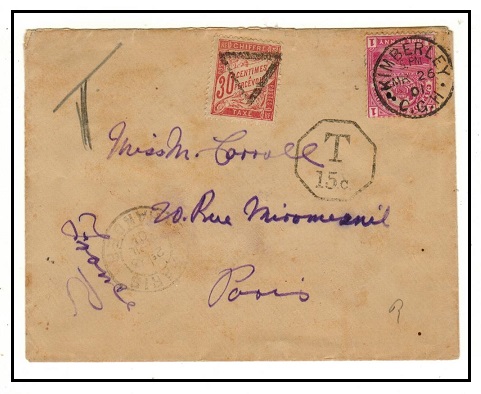 T
CHIFFRE
30
CENTIMES
À PERCEVOIR
TAXE
1 ANN
1
KIMBERLEY
PM
MR 26
01
C.G.H
T
15c
Miss M. Carroll
20. Rue Miromesnil
Paris
France
PARIS
R